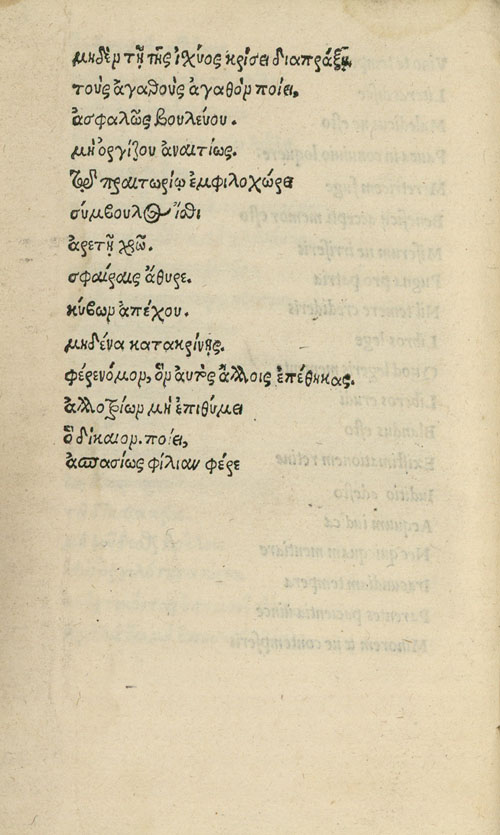 μηδὲν τῇ τῆς ἰχύος κρίσει διαπράξῃ
τοὺς ἀγαθοὺς ἀγαθὸν ποίει,
ἀσφαλῶς βουλεύου.
μὴ ὀργίζου ἀναιτίως.
τῷ πραιτωρίῳ ἐμφιλοχώρει
σύμβουλος ἴσθι
ἀρετῇ χρῶ.
σφαίραις ἄθυρε.
κύβων ἀπέχου.
μηδένα κατακρίνῃς.
φέρε νόμον, ὃν αὐτὸς ἄλλοις ἐπέθηκας.
ἀλλοτρίων μὴ ἐπιθύμει
ὃ δίκαιον. ποίει,
ἀσπασίως φίλιαν φέρε